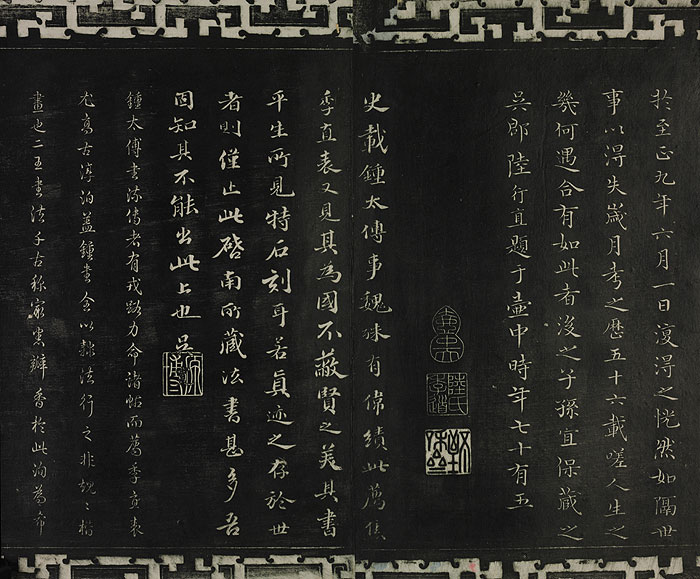 於至正九年六月一日復得之恍然如隔世
事以得失歲月考之歷五十六載嗟人生之
幾何遇合有如此者後之子孫宜保藏之
吳郡陸行直題于壺中時年七十有五
陸氏季道
史載鍾太傅事魏殊有偉績此薦侯
季直表又見其為國不蔽賢之美其書
平生所見特石刻耳若眞迹之存於世
者則僅止此啓南所藏法書甚多吾
固知其不能出此上也 吳
原博
鍾太傅書流傳者有戎路力命諸帖而薦季直表
尤高古淳泊蓋鍾書全以隸法行之非規規楷
畫也二王書法千古稱瓣香於此洵為希